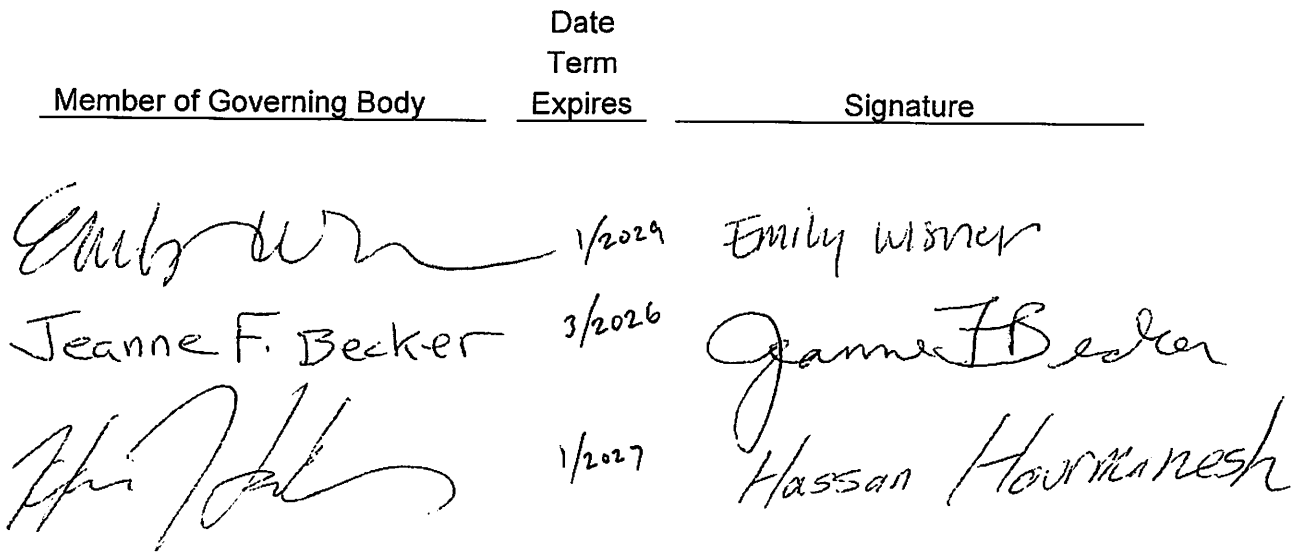 Date
Term
Member of Governing Body Expires Signature
Emily W 1/2029 Emily Wisner
Jeanne F. Becker 3/2026 Jeanne F Becker
1/2027 Hassan Hourmanesh